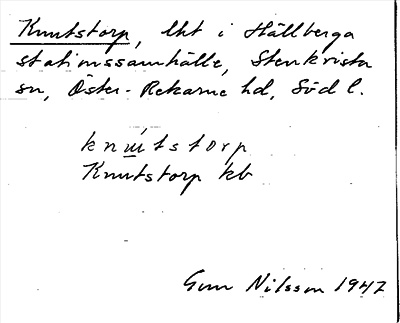 Knutstorp, lht i Hällberga
stationssamhälle, Stenkvista
sn, Öster-Rekarne hd, Södl.
knutstorp
Knutstorp kb
Gun Nilsson 1947